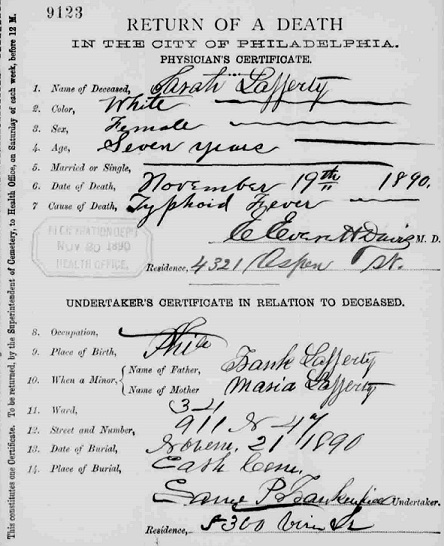 9123
RETURN OF A DEATH
IN THE CITY OF PHILADELPHIA.
PHYSICIAN'S CERTIFICATE.
1. Name of Deceased, Sarah Lafferty
2. Color, White
3. Sex, Female
4. Age, Seven years
5. Married or Single,
6 Date of Death, November 19th 1890.
7 Cause of Death, Typhoid Fever
C Everett Davis M. D.
NOV 20 1890
HEALTH OFFICE.
Residence, 4321 Aspen St.
UNDERTAKER'S CERTIFICATE IN RELATION TO DECEASED.
8. Occupation,
9. Place of Birth, Phila
10. When a Minor, Name of Father, Frank Lafferty
Name of Mother Maria Lafferty
11. Ward,
12. Street and Number, 911 N 47
13. Date of Burial, Novem. 21 1890
14. Place of Burial, Cath Cem.
Undertaker.
Residence, 5300 Vine St
This constitutes one Certificate. To be returned, by the Superintendent of Cemetery, to Health Office, on Saturday of each week, before 12 M.